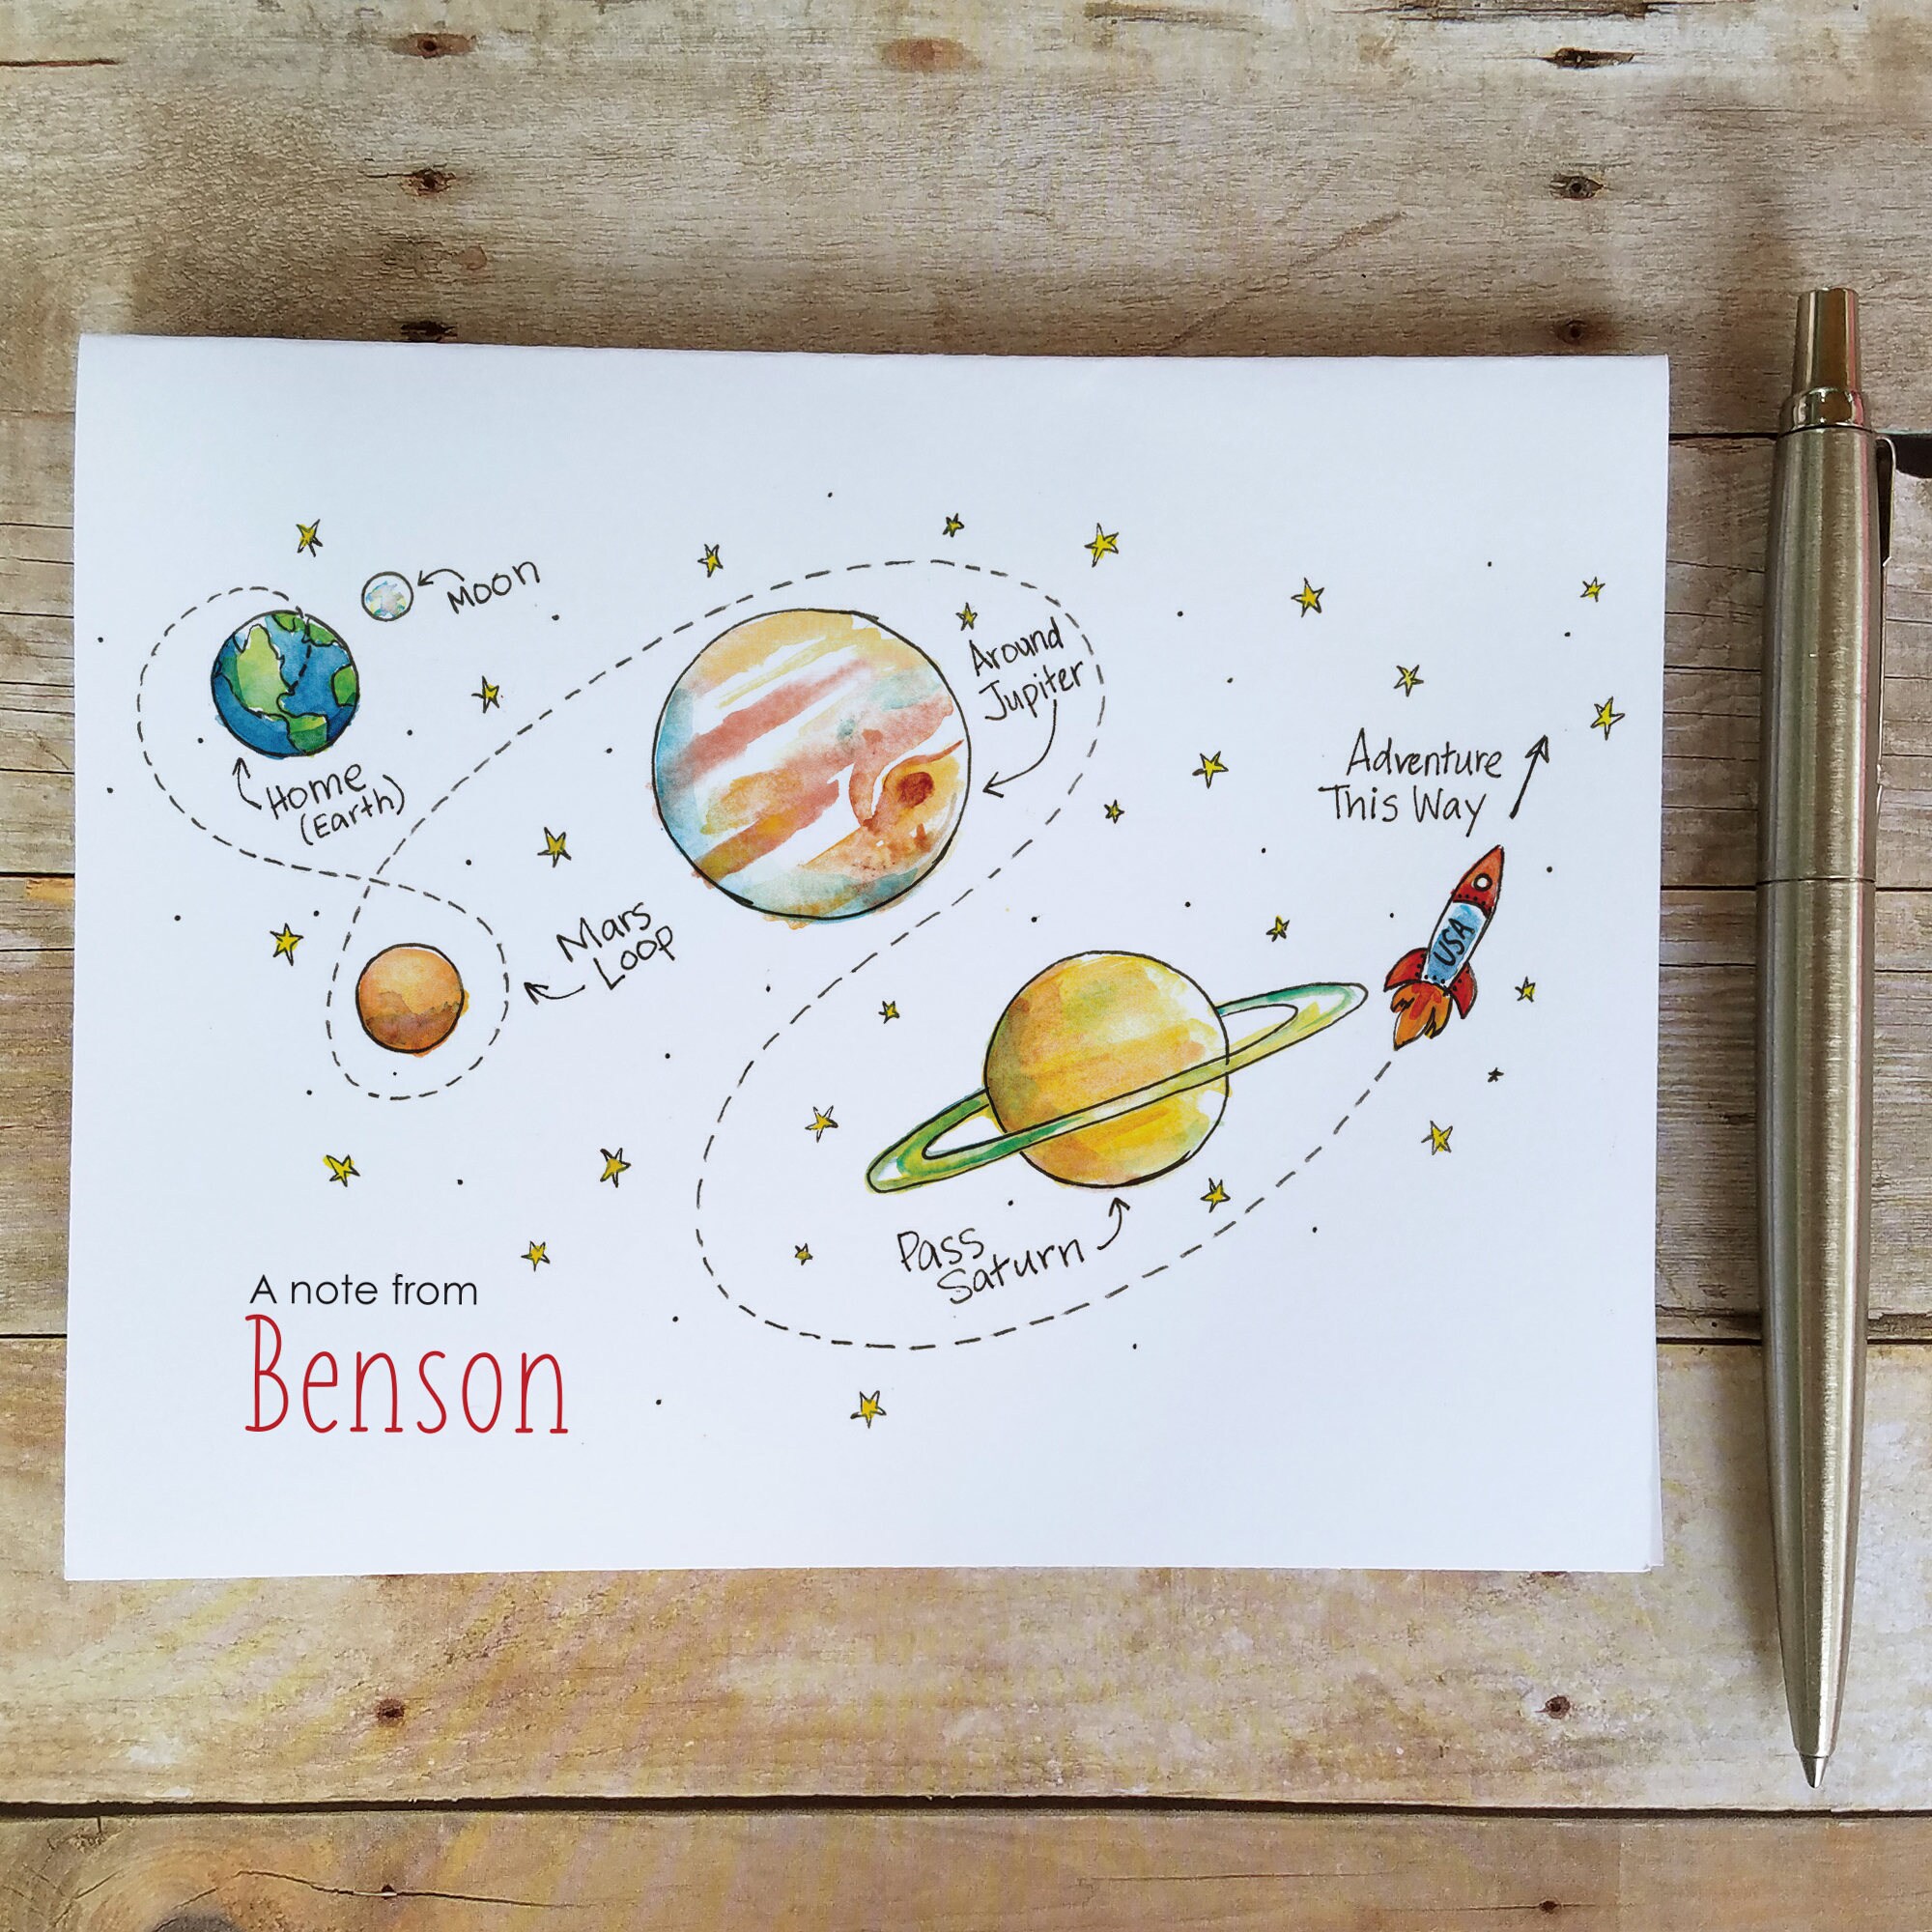 Moon
Home
(Earth)
Around
Jupiter
Mars
Loop
Adventure
This Way
USA
Pass
Saturn
A note from
Benson